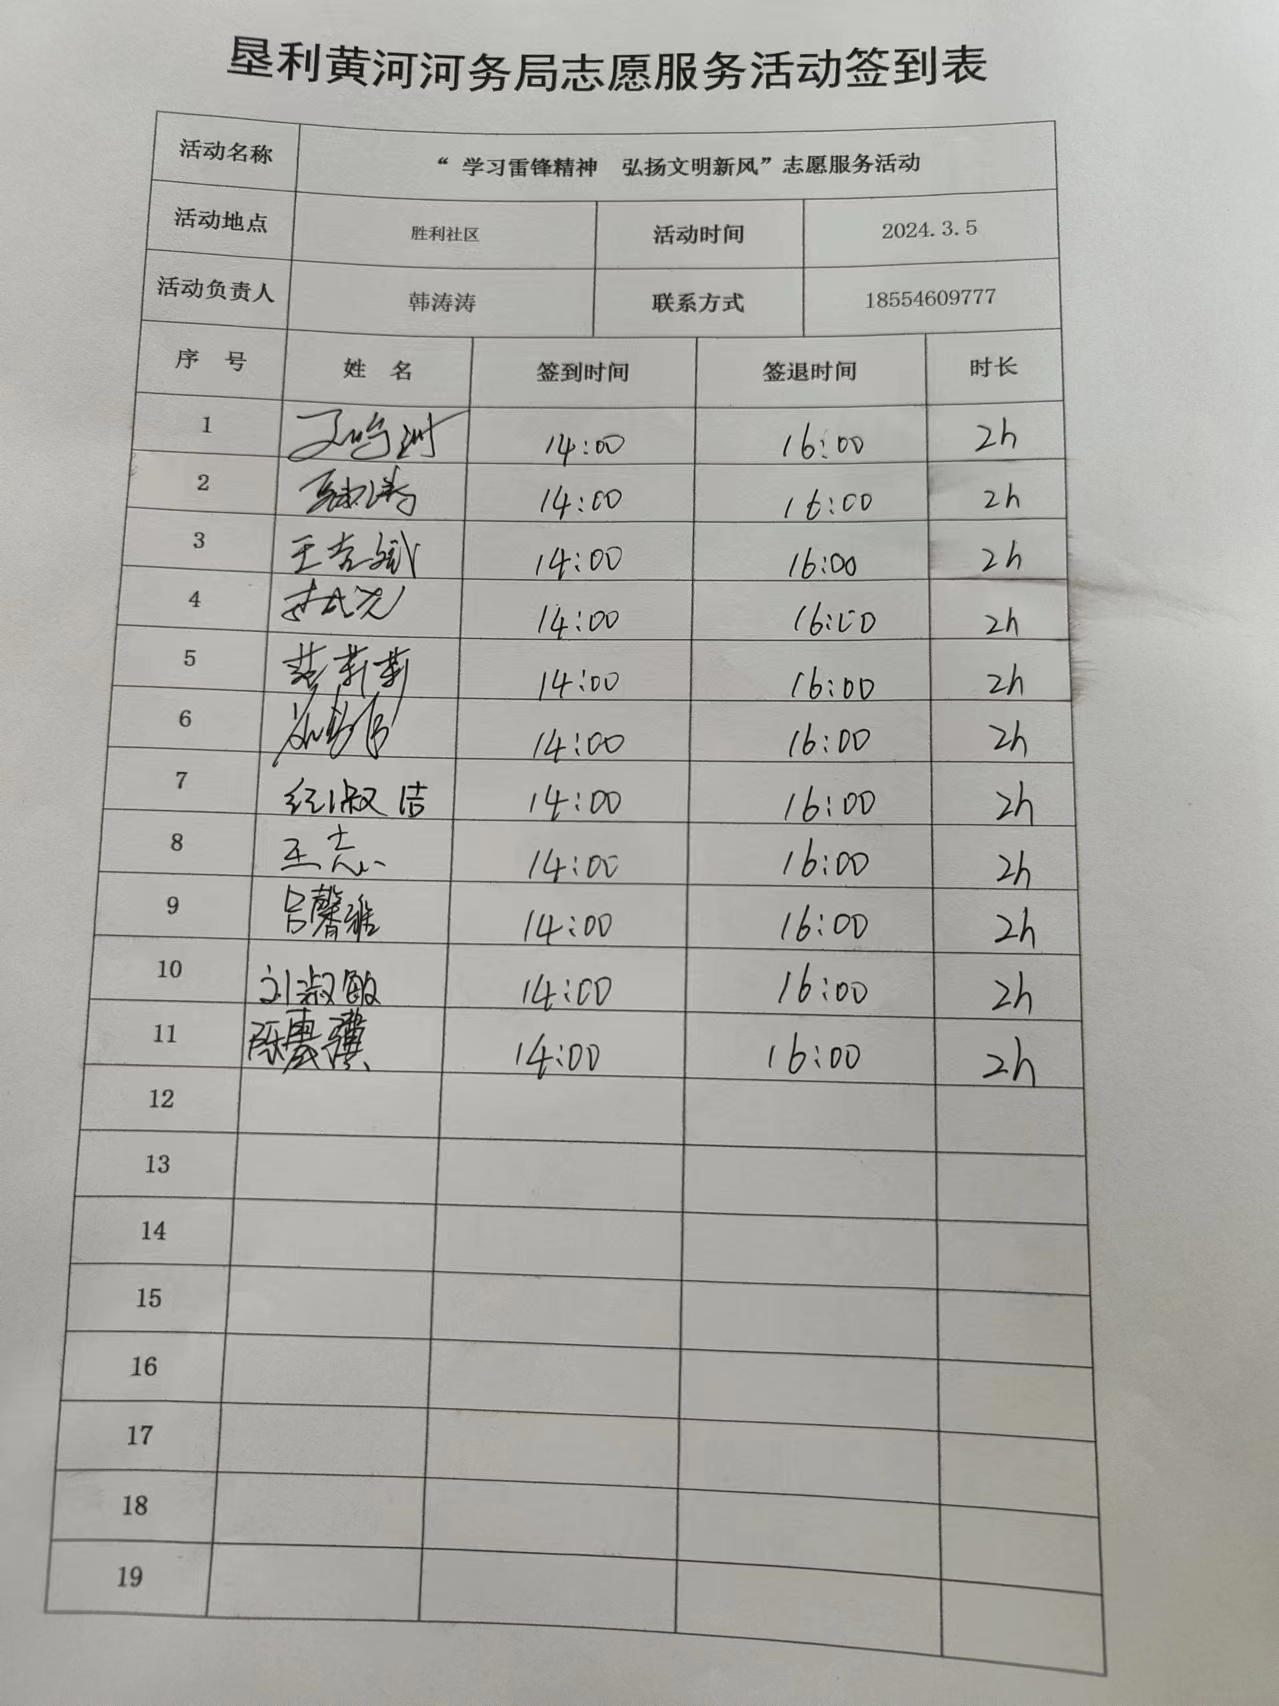 垦利黄河河务局志愿服务活动签到表
活动名称 “ 学习雷锋精神 弘扬文明新风”志愿服务活动
活动地点 胜利社区 活动时间 2024.3.5
活动负责人 韩涛涛 联系方式 18554609777
序 号 姓 名 签到时间 签退时间 时长
1 14:00 16:00 2h
2 14:00 16:00 2h
3 王克斌 14:00 16:00 2h
4 14:00 16:00 2h
5 莉莉 14:00 16:00 2h
6 14:00 16:00 2h
7 纪淑洁 14:00 16:00 2h
8 王志 14:00 16:00 2h
9 吕馨雅 14:00 16:00 2h
10 刘淑敏 14:00 16:00 2h
11 14:00 16:00 2h
12
13
14
15
16
17
18
19